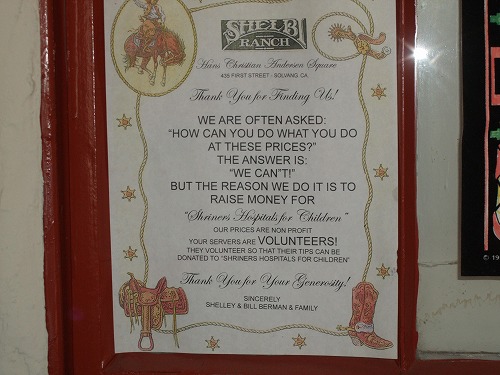 SHELBI
RANCH
Hans Christian Andersen Square
435 FIRST STREET - SOLVANG, CA
Thank You for Finding Us!
WE ARE OFTEN ASKED:
"HOW CAN YOU DO WHAT YOU DO
AT THESE PRICES?"
THE ANSWER IS:
"WE CAN"T!"
BUT THE REASON WE DO IT IS TO
RAISE MONEY FOR
"Shriners Hospitals for Children"
OUR PRICES ARE NON PROFIT
YOUR SERVERS ARE VOLUNTEERS!
THEY VOLUNTEER SO THAT THEIR TIPS CAN BE
DONATED TO "SHRINERS HOSPITALS FOR CHILDREN"
Thank You for Your Generosity!
SINCERELY
SHELLEY & BILL BERMAN & FAMILY
© 19